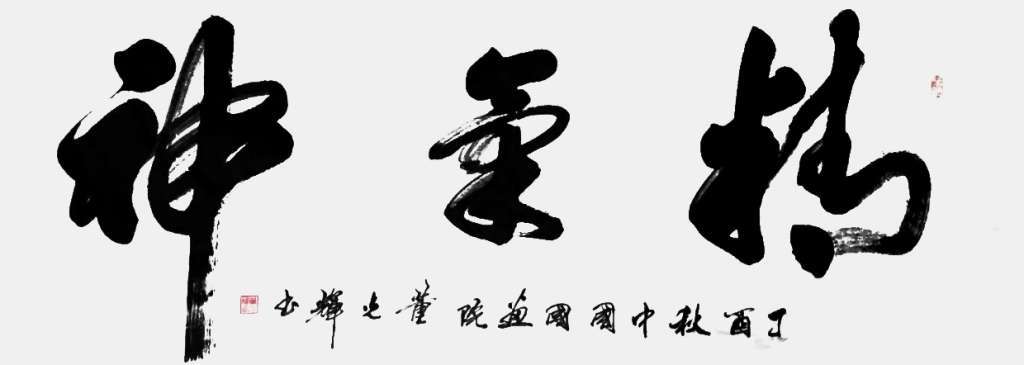 精氣神
丁酉秋中國國畫院董光輝书